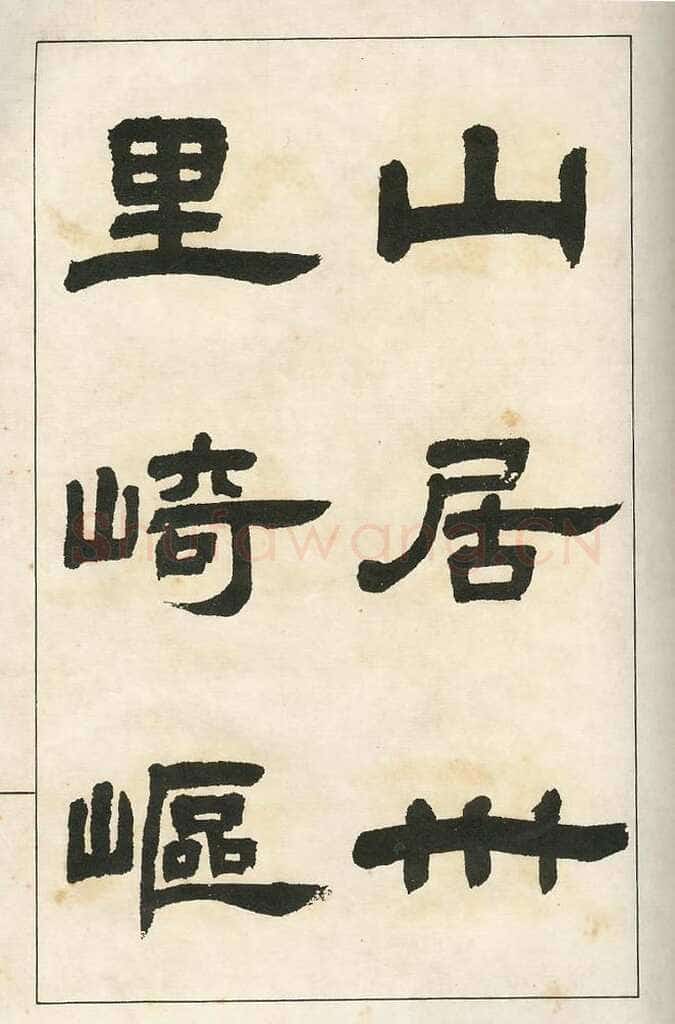 山居卅
里崎嶇
Shufawang.CN